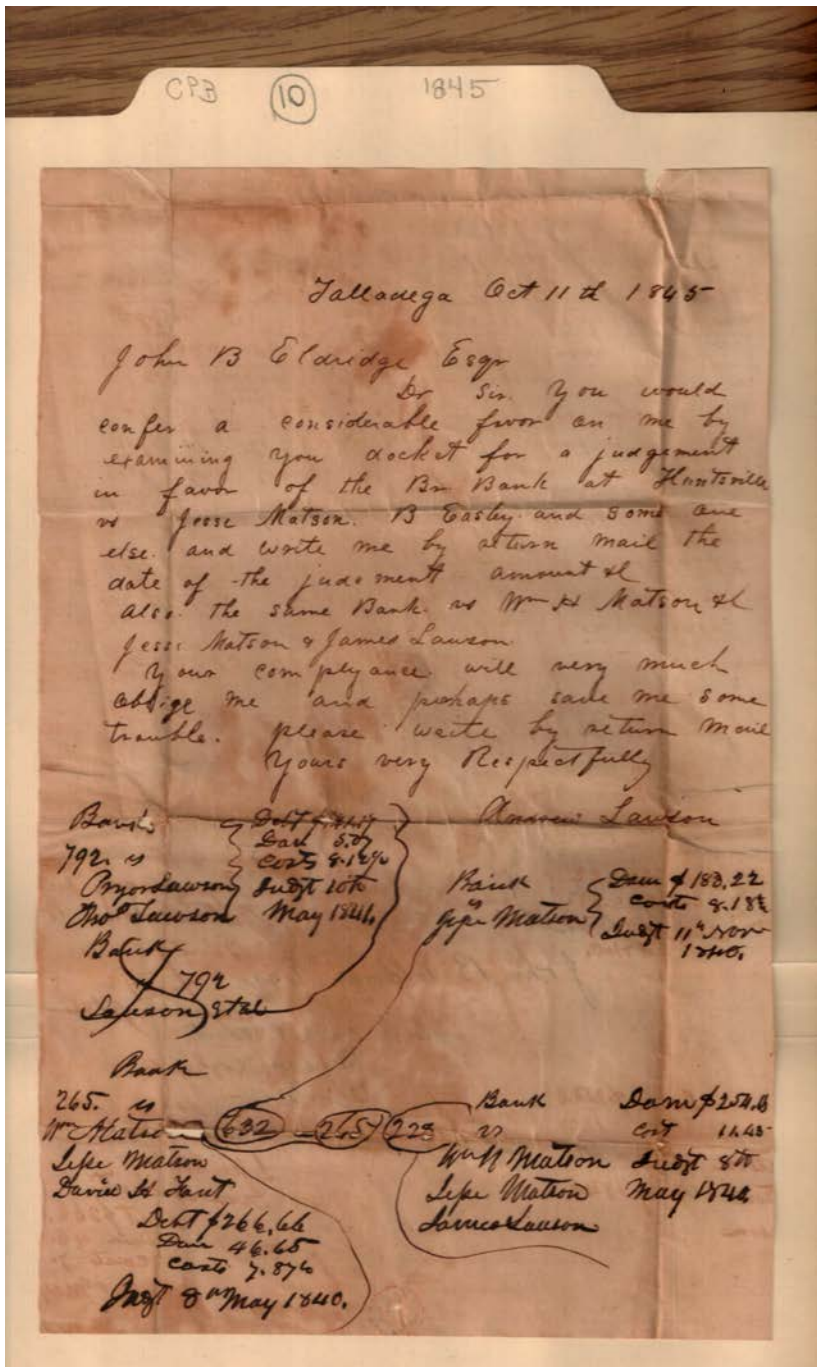 CPB 10 1845
Talladega Oct 11th 1845
John B Eldridge Esqr
Dr Sir. You would
confer a considerable favor on me by
examining you docket for a judgement
in favor of the Br Bank at Huntsville
vs Jesse Matson. B Easley and some one
else. and write me by return mail the
date of the judgement amount &c
also. the same Bank vs Wm H Matson &c
Jesse Matson & James Lawson.
Your complyance will very much
oblige me and perhaps save me some
trouble. please write by return mail
Yours very Respectfully
Andrew Lawson
Bank
792 vs
Pryor Lawson
Thos Lawson
Debt
Dam
Costs
Judgt 10th
May 1841.
Bank
792
Lawson et al
Bank
vs
Jesse Matson
Dam $183.22
Costs
Judgt 11th Novr
1840.
Bank
265. vs
Wm Matson
Jesse Matson
David H
Debt $266.66
Dam 46.65
Costs
Judgt 8th May 1840.
632 265 228
Bank
vs
Wm H Matson
Jesse Matson
James Lawson
Dam
Cost 11.45
Judgt 8th
May